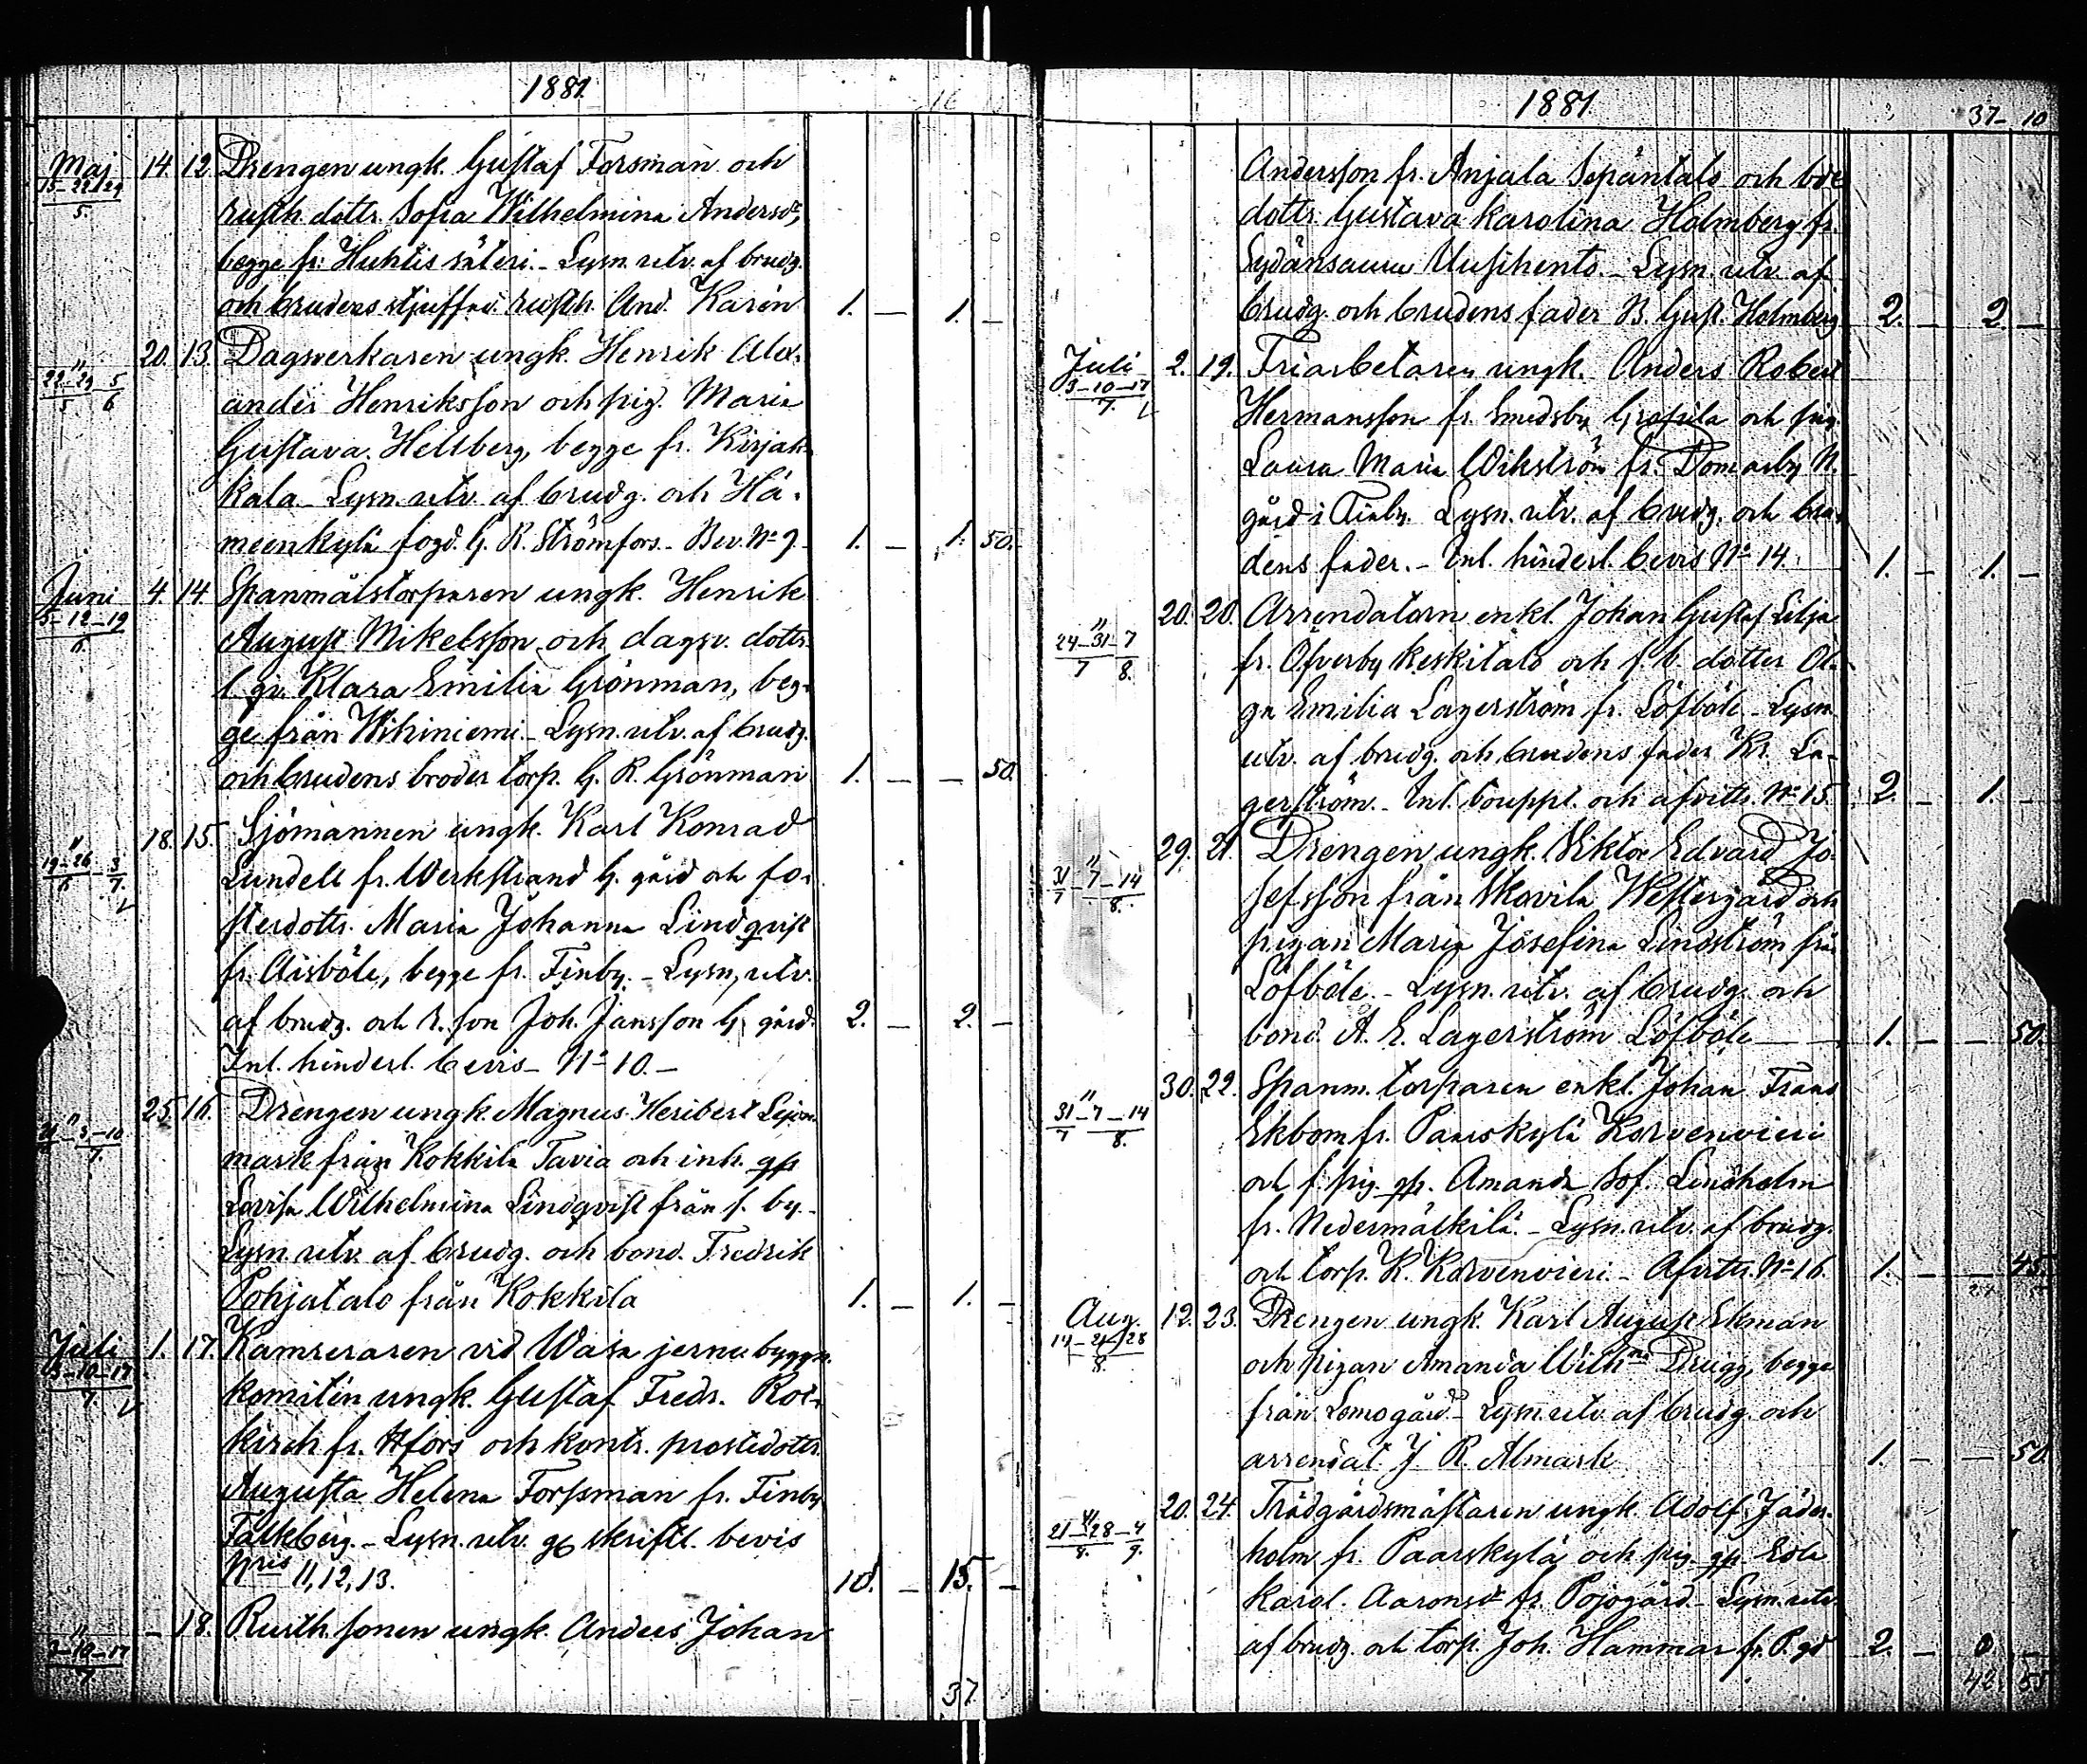 1881.
Maj 14. 12. Drengen ungk. Gustaf Forsman och
15-22-29/5. rusth. dottr. Sofia Wilhelmina Andersdr,
begge fr. Huhtis säteri. - Lysn. utv. af brudg.
och brudens stjuffad. rusth. And. Karén 1. — 1. —
" 20. 13. Dagsverkaren ungk. Henrik Alex-
22-29/5 - 5/6 ander Henriksson och pig. Maria
Gustava Helsberg, begge fr. Kirjak-
kala. Lysn. utv. af brudg. och Hä-
meenkylä fogd. G. R. Strömfors. - Bev. No 9. 1. — 1. 50.
Juni 4. 14. Spanmålstorparen ungk. Henrik
5-12-19/6. August Mikelsson och dagsv. dottr.
l. qv. Klara Emilia Grönman, beg-
ge från Wihiniemi. - Lysn. utv. af brudg.
och brudens broder torp. G. R. Grönman 1. — — 50.
" 18. 15. Sjömannen ungk. Karl Konrad
19-26/6 - 3/7. Lundell fr. Verkstrand G. gård och fo-
sterdottr. Maria Johanna Lindqvist
fr. Aisböle, begge fr. Finby. - Lysn. utv.
af brudg. och r. son Joh. Jansson G. gård. 2. — 2. —
Inl. hinderl. bevis - No 10. -
" 25. 16. Drengen ungk. Magnus Heribert Lejon-
3-10/7. mark från Kokkila Tavia och inh. gp
Lovisa Wilhelmina Lindqvist från s. by. -
Lysn. utv. af brudg. och bond. Fredrik
Pohjatalo från Kokkila 1. — 1. —
Juli 1. 17. Kamreraren vid Wasa jernv. byggn.
3-10-17/7. komitén ungk. Gustaf Fredr. Rot-
kirch fr. Hfors och kontr. prostedottr.
Augusta Helena Forssman fr. Finby
Falkberg. - Lysn. utv. gg skriftl. bevis
Nris 11, 12, 13. 10. — 15. —
" — 18. Rusth. sonen ungk. Anders Johan
3-10-17/7
37
1881
37 - 10
Andersson fr. Anjala Sepäntalo och bde
dottr. Gustava Karolina Holmberg fr.
Sydänsauu Uusihento. - Lysn. utv. af
brudg. och brudens fader B. Gust. Holmberg 2. — 2. —
Juli 2. 19. Friarbetaren ungk. Anders Robert
3-10-17/7. Hermansson fr. Smedsby och pig.
Laura Maria Wikström fr. Domarby N.
gård i Finby. Lysn. utv. af brudg. och bru-
dens fader. - Inl. hinderl. bevis No 14. 1. — 1. —
" 20. 20. Arrendatorn enkl. Johan Gustaf Lilja
24-31/7 - 7/8. fr. Öfverby Keskitalo och f. b. dotter Ol-
ga Emilia Lagerström fr. Löfböle - Lysn.
utv. af brudg. och brudens fader Kr. La-
gerström. - Inl. bouppt. och afvittr. No 15. 2. — 1. —
" 29. 21. Drengen ungk. Viktor Edvard Jo-
31/7 - 7-14/8. sefsson från Skovila Westergård och
pigan Maria Josefina Lindström från
Löfböle. - Lysn. utv. af brudg. och
bond. A. E. Lagerström Löfböle 1. — — 50.
" 30. 22. Spanm. torparen enkl. Johan Frans
31/7 - 7-14/8. Ekbom fr. Paarskylä Korvenvieri
och f. pig. gp. Amanda Sof. Lindholm
fr. Nedermälkilä. - Lysn. utv. af brudg.
och torp. K. Korvenvieri. - Afvittr. No 16. 1. — — 45.
Aug. 12. 23. Drengen ungk. Karl August Ekman
14-21-28/8. och pigan Amanda Wilhna Drugg, begge
från Lemogård - Lysn. utv. af brudg. och
arrendat. J. R. Almark 1. — — 50.
" 20. 24. Trädgårdsmästaren ungk. Adolf Jäder-
21-28/8. - 4/9. holm fr. Paarskylä och pig. gp. Eda
Karol. Aaronsdr fr. Pojogård - Lysn. utv.
af brudg. och torp. Joh. Hammar fr. P. gd 2. — 0 —
42 55